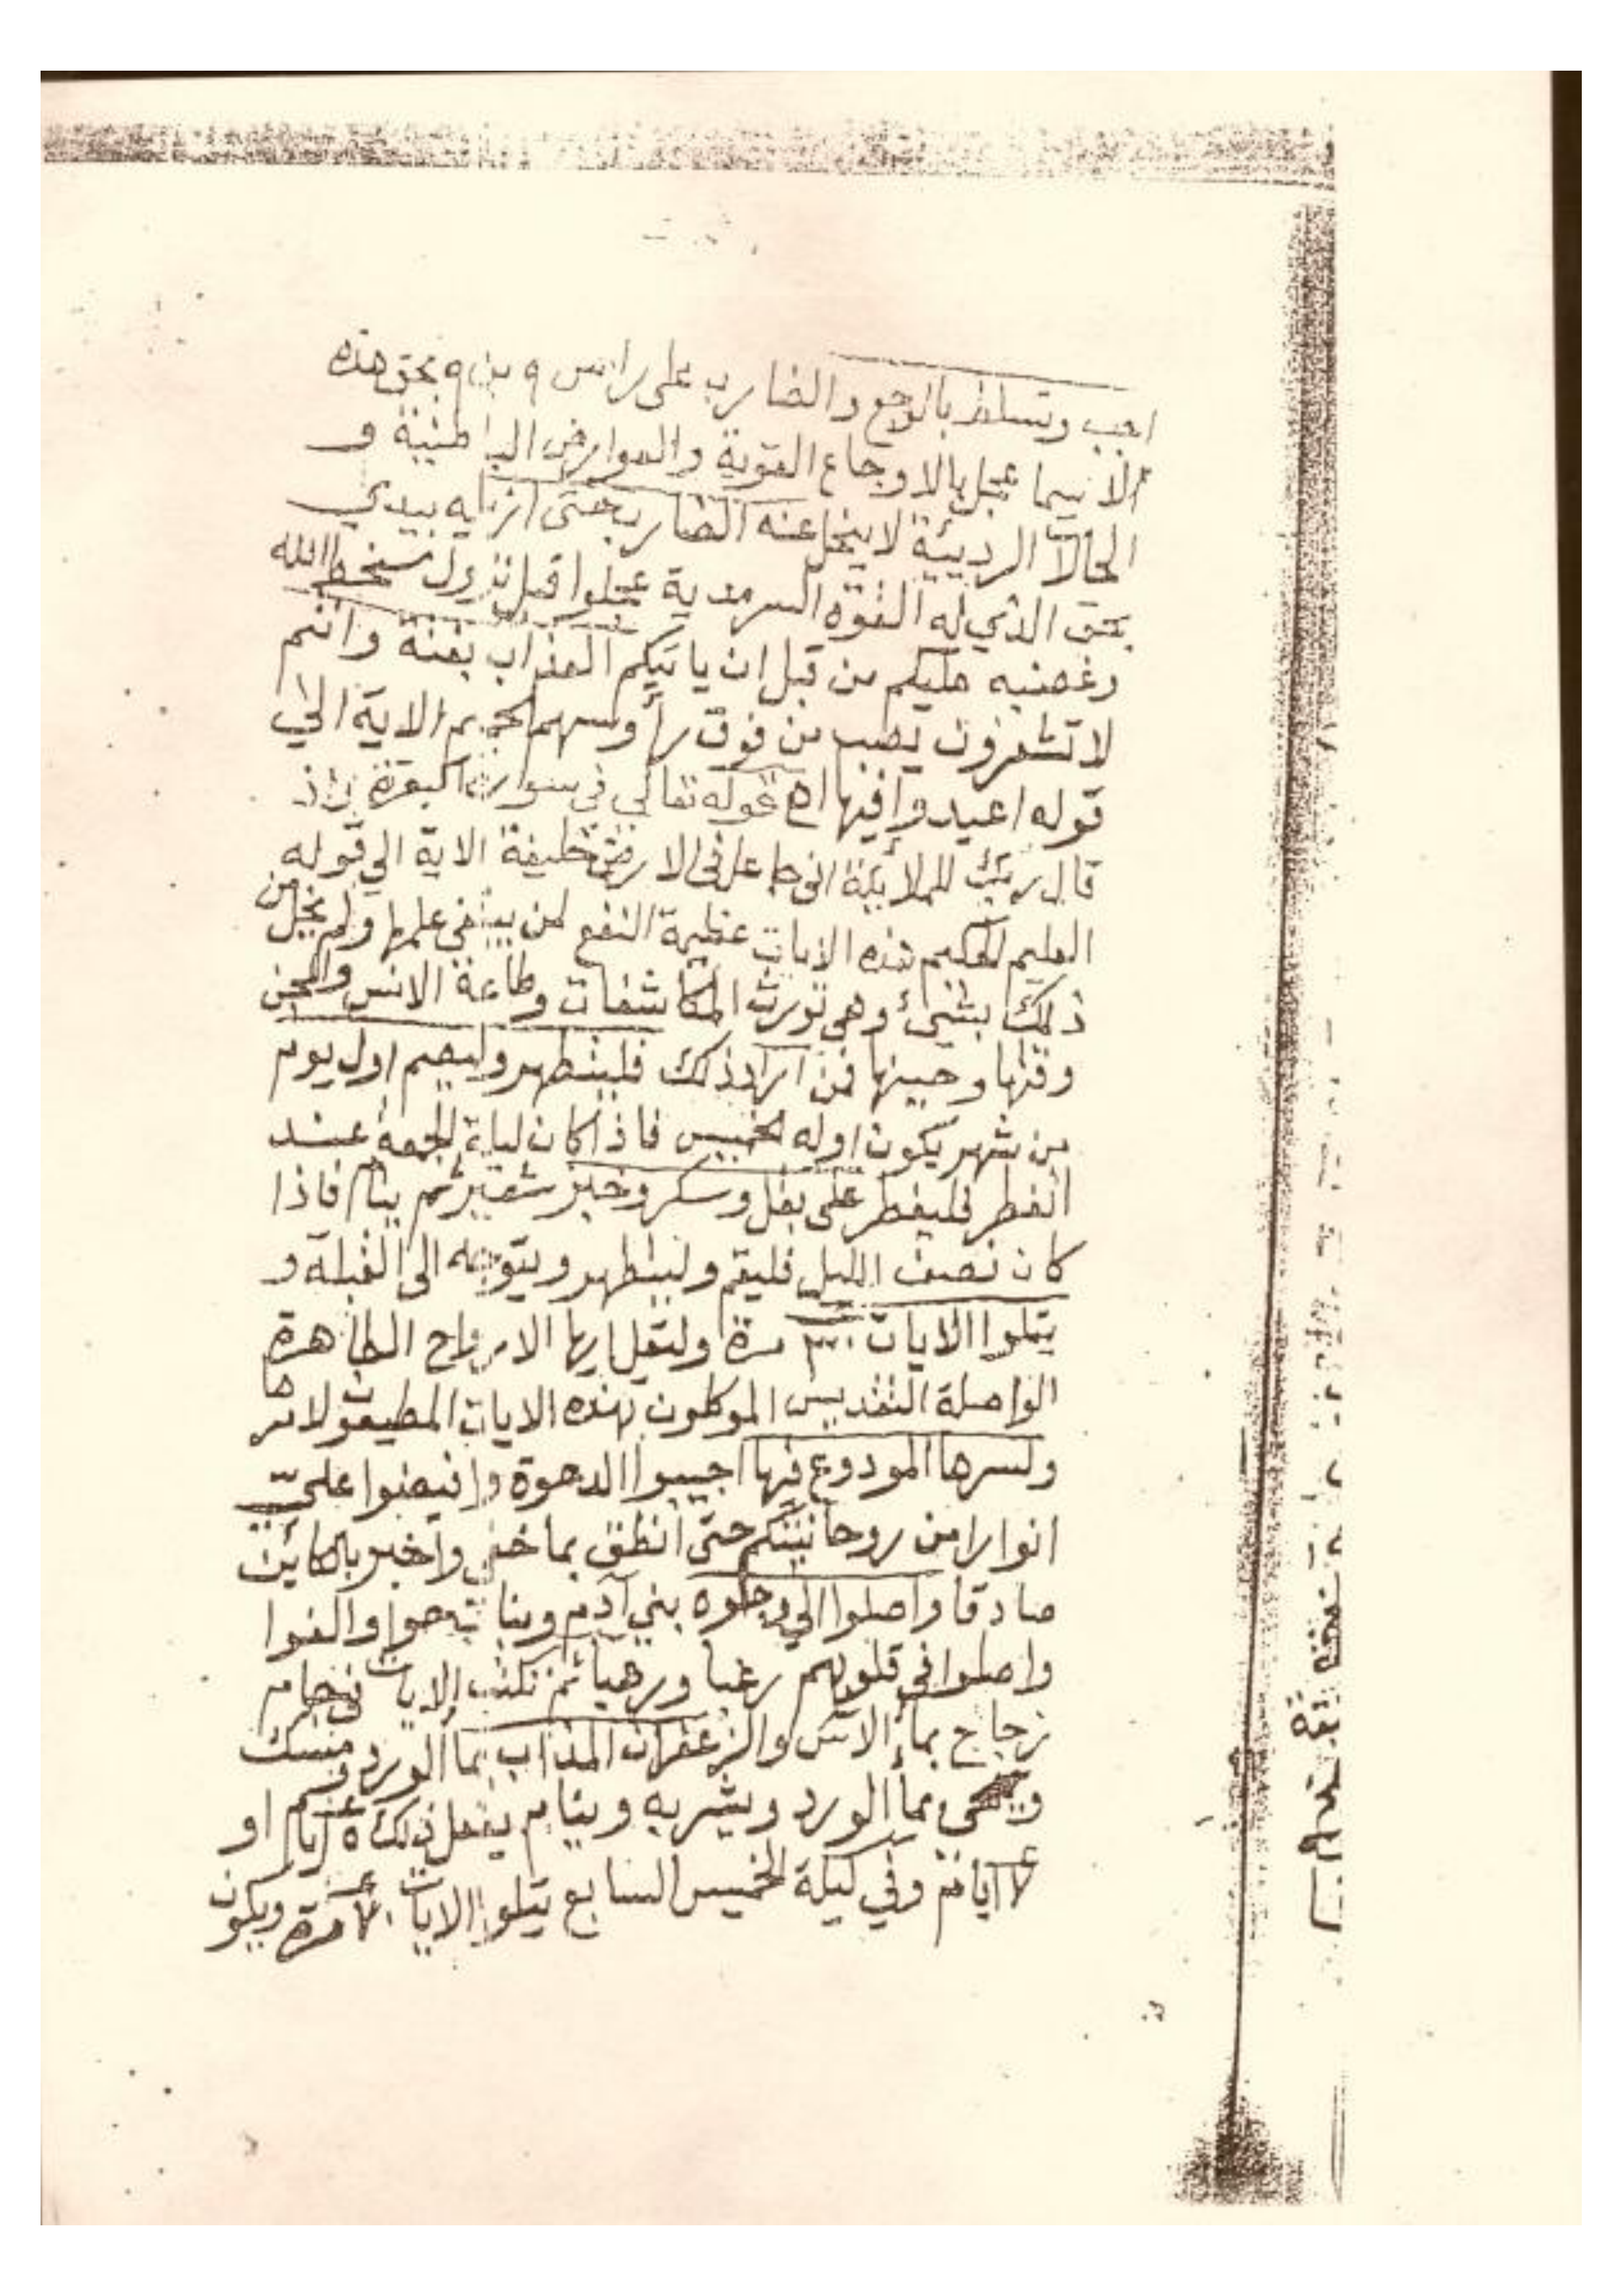 اجب وتسلط بالوجع والضارب على راس ٩ بن ٩ بحق هذه
الاسما عجل بالاوجاع القوية والعوارض الباطنية و
الحالات الرديئة لا ينحل عنه الضارب حتى ازيله بيدي
بحق الذي له القوة السرمدية عجلوا قبل نزول سخط الله
وغضبه عليكم من قبل ان ياتيكم العذاب بغتة وانتم
لا تشعرون يصب من فوق رأوسهم الحميم الاية الي
قوله اعيدوا فيها اه قوله تعالي في سوارة البقرة واذ
قال ربك للملائكة اني جاعل في الارض خليفة الاية الي قوله
العليم الحكيم هذه الايات عظيمة النفع لمن يبتغي علمها ولم يخل من
ذلك بشيئ وهي تورث المكاشفات وطاعة الانس والجن
وقتها وحينها فمن اراد ذلك فليتطهر وليصم اول يوم
من شهر يكون اوله الخميس فاذا كان ليلة الجمعة عند
الفطر فليفطر على بقل وسكر وخبز شعير ثم ينام فاذا
كان نصف الليل فليقم وليتطهر ويتوجه الى القبلة و
يتلوا الايات ٣٠ مرة وليقل ايها الارواح الطاهرة
الواصلة التقديس الموكلون بهذه الايات المطيعون لامرها
ولسرها المودوع فيها اجيبوا الدعوة وافيضوا على
انوارا من روحانيتكم حتى انطق بما خفي واخبر بالكاين
صادقا واصلوا الي وجلوه بني آدم وبنات حوا والقوا
واصلوا في قلوبهم رغبا ورهبا ثم تكتب الايات في جام
زجاج بماء الآس والزعفران المذاب بما الورد ومسك
ويمحى بماء الورد ويشربه وينام يفعل ذلك ٥ ايام او
٧ ايام وفي ليلة الخميس السابع يتلوا الايات ٧٠ مرة ويكون